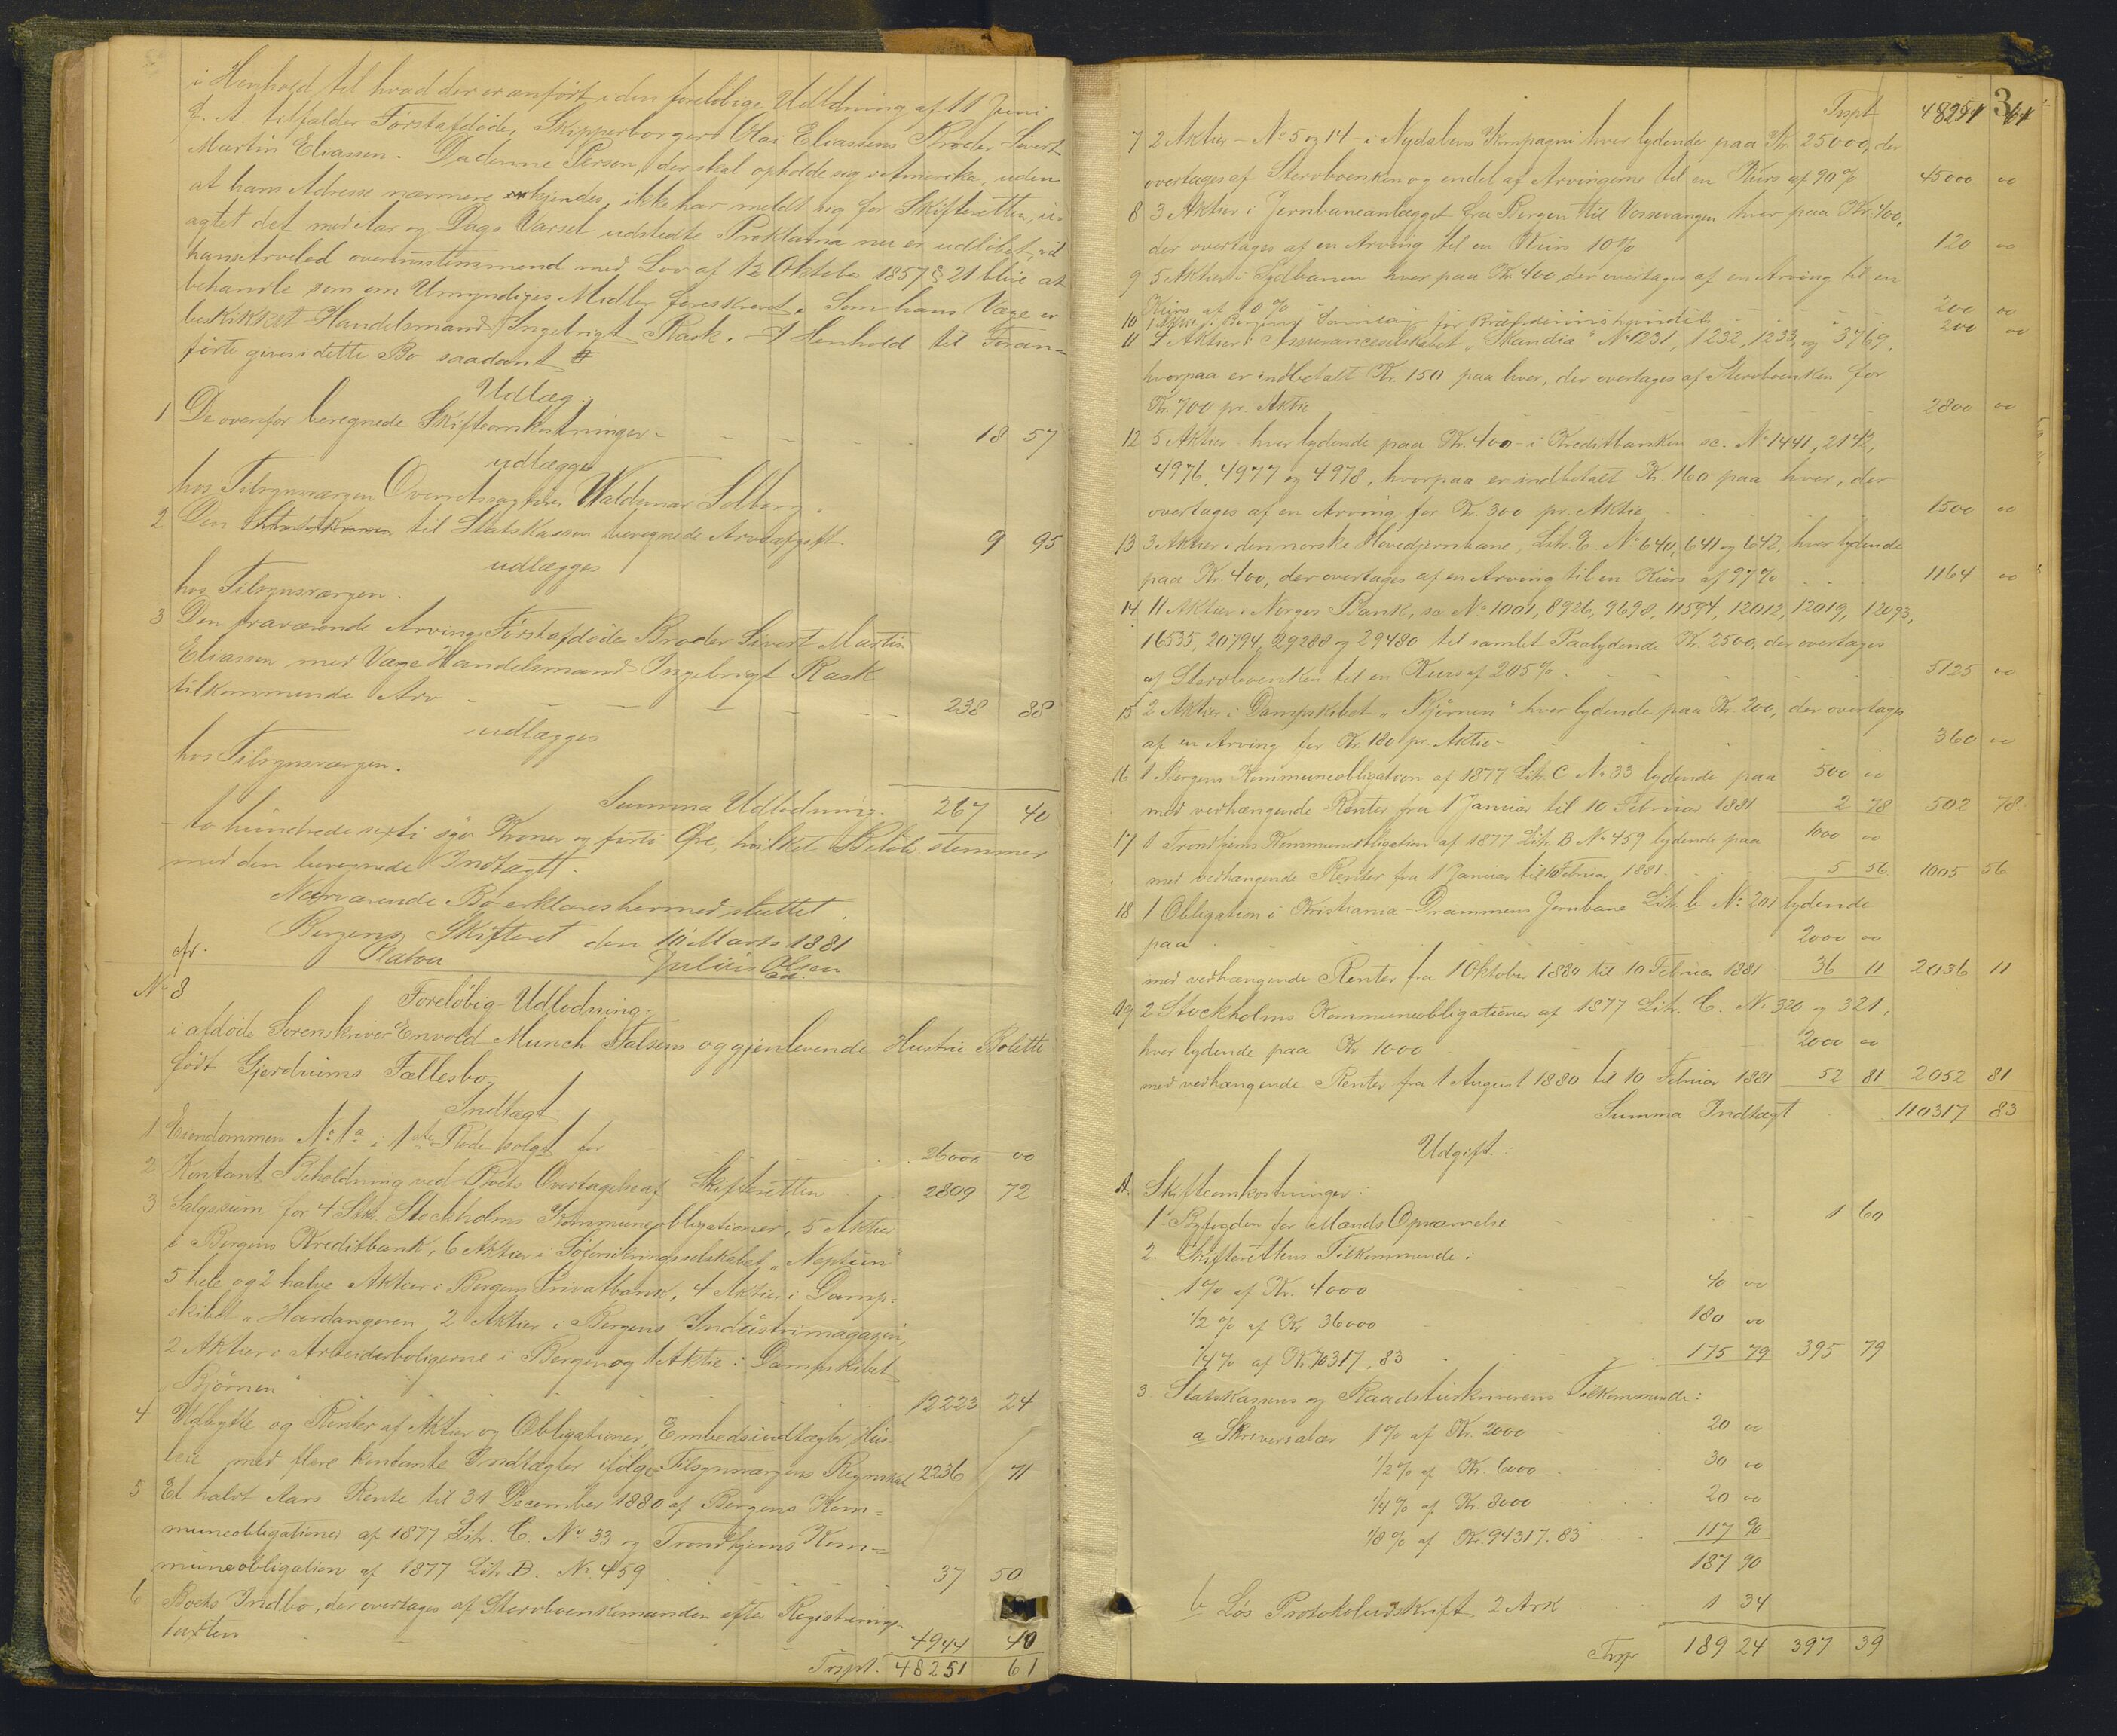 i Henhold til hvad der er anført i den foreløbige Udlodning af 11 Juni
f. A. tilfalder Førstafdøde, Skipperborger Olai Eliassens Broder Sivert
Martin Eliassen. Da denne Person, der skal opholde sig i Amerika, uden
at hans Adresse nærmere kjendes, ikke har meldt sig for Skifteretten, u-
agtet det med Aar og Dags Varsel udstedte Proklama nu er udløbet, vil
hans Arvelod overensstemmend med Lov af 12 Oktober 1857 § 21 blive at
behandle som om Umyndiges Midler foreskrevet. Som hans Værge er
beskikket Handelsmand Ingebrigt Rask. I Henhold til Foran-
førte gives i dette Bo saadant
Udlæg.
1 De ovenfor beregnede Skifteomkostninger - 18 57
udlægges
hos Tilsynsværgen Overretssagfører Waldemar Solberg.
2 Den til Statskassen beregnede Arveafgift 9 95
udlægges
hos Tilsynsværgen.
3 Den fraværende Arving, Førstafdødes Broder Sivert Martin
Eliassen med Værge Handelsmand Ingebrigt Rask
tilkommende Arv 238 88
udlægges
hos Tilsynsværgen.
Summa Udlodning. 267 40
- to hundrede sexti syv Kroner og førti Øre, hvilket Beløb stemmer
med den beregnede Indtægt.
Nærværende Bo erklæres hermed sluttet.
Bergens Skifteret den 10 Marts 1881
Platou Julius Olsen
No 8
Foreløbig Udlodning
i afdøde Sorenskriver Envold Munch Falsens og gjenlevende Hustru Bolette
født Gjerdrums Fællesbo
Indtægt
1 Eiendommen No 1a i 1ste Rode solgt for 26000 00
2 Kontant Beholdning ved Boets Overtagelse af Skifteretten 2809 72
3 Salgssum for 4 Stk. Stockholms Kommuneobligationer, 5 Aktier
i Bergens Kreditbank, 6 Aktier i Søforsikringsselskabet „Neptun"
5 hele og 2 halve Aktier i Bergens Privatbank, 4 Aktier i Damp-
skibet „Hardangeren, 2 Aktier i Bergens Industrimagazin,
2 Aktier i Arbeiderboligerne i Bergen og 1 Aktie i Dampskibet
Bjørnen" 12223 24
4 Udbytte og Renter af Aktier og Obligationer, Embedsindtægter, Hus-
leie med flere kontante Indtægter ifølge Tilsynsværgens Regnskab 2236 71
5 Et halvt Aars Rente til 31 December 1880 af Bergens Kom-
muneobligationer af 1877 Litr. C. No 33 og Trondhjems Kom-
muneobligation af 1877 Litr. B. No. 459 37 50
6 Boets Indbo, der overtages af Stervboenkemanden efter Registrerings-
taxten 4944 40
Trspt. 48251 61
3
Trspt 48251 61
7 2 Aktier - No 5 og 14 - i Nydalens Kompagni hver lydende paa Kr. 25000, der
overtages af Stervboenken og endel af Arvingerne til en Kurs af 90% 45000 00
8 3 Aktier i Jernbaneanlægget fra Bergen til Vossevangen hver paa Kr 400,
der overtages af en Arving til en Kurs 10% 120 00
9 5 Aktier i Sydbanen hver paa Kr. 400 der overtages af en Arving til en
Kurs af 10% 200 00
10 1 Aktie i Bergens 200 00
11 4 Aktier i Assuranceselskabet „Skandia" No 1231, 1232, 1233, og 3769,
hvorpaa er indbetalt Kr. 150 paa hver, der overtages af Stervboenken for
Kr. 700 pr. Aktie 2800 00
12 5 Aktier hver lydende paa Kr. 400 - i Kreditbanken sc. No 1441, 2142,
4976, 4977 og 4978, hvorpaa er indbetalt Kr. 160 paa hver, der
overtages af en Arving for Kr. 300 pr. Aktie 1500 00
13 3 Aktier i den norske Hovedjernbane, Litr. E. No 640, 641 og 642, hver lydende
paa Kr. 400, der overtages af en Arving til en Kurs af 97% 1164 00
14. 11 Aktier i Norges Bank, sc No 1001, 8926, 9698, 11594, 12012, 12019, 12093,
16535, 20794, 29288 og 29480 til samlet Paalydende Kr. 2500, der overtages
af Stervboenken til en Kurs af 205% 5125 00
15 2 Aktier i Dampskibet „Bjørnen" hver lydende paa Kr. 200, der overtages
af en Arving for Kr. 180 pr. Aktie - 360 00
16 1 Bergens Kommuneobligation af 1877 Litr. C No 33 lydende paa 500 00
med vedhængende Renter fra 1 Januar til 10 Februar 1881 2 78 502 78
17 1 Trondhjems Kommuneobligation af 1877 Litr. B No 459 lydende paa 1000 00
med vedhængende Renter fra 1 Januar til 10 Februar 1881. 5 56 1005 56
18 1 Obligation i Kristiania-Drammens Jernbane Litr. b No 201 lydende
paa 2000 00
med vedhængende Renter fra 1 Oktober 1880 til 10 Februar 1881 36 11 2036 11
19 2 Stockholms Kommuneobligationer af 1877 Litr. C. No. 320 og 321,
hver lydende paa Kr 1000 2000 00
med vedhængende Renter fra 1 August 1880 til 10 Februar 1881 52 81 2052 81
Summa Indtægt 110317 83
Udgift:
A. Skifteomkostninger:
1. Byfogden for Mands Opnævnelse 1 60
2. Skifterettens Tilkommende:
1% af Kr. 4000 40 00
1/2% af Kr 36000 180 00
1/4% af Kr. 70317.83 175 79 395 79
3 Statskassens og Raadstuskriverens Tilkommende:
a Skriversalær 1% af Kr. 2000 20 00
1/2% af Kr. 6000 30 00
1/4% af Kr. 8000 20 00
1/8% af Kr. 94317.83 117 90
187 90
b Løs Protokoludskrift 2 Ark 1 34
Trsp 189 24 397 39